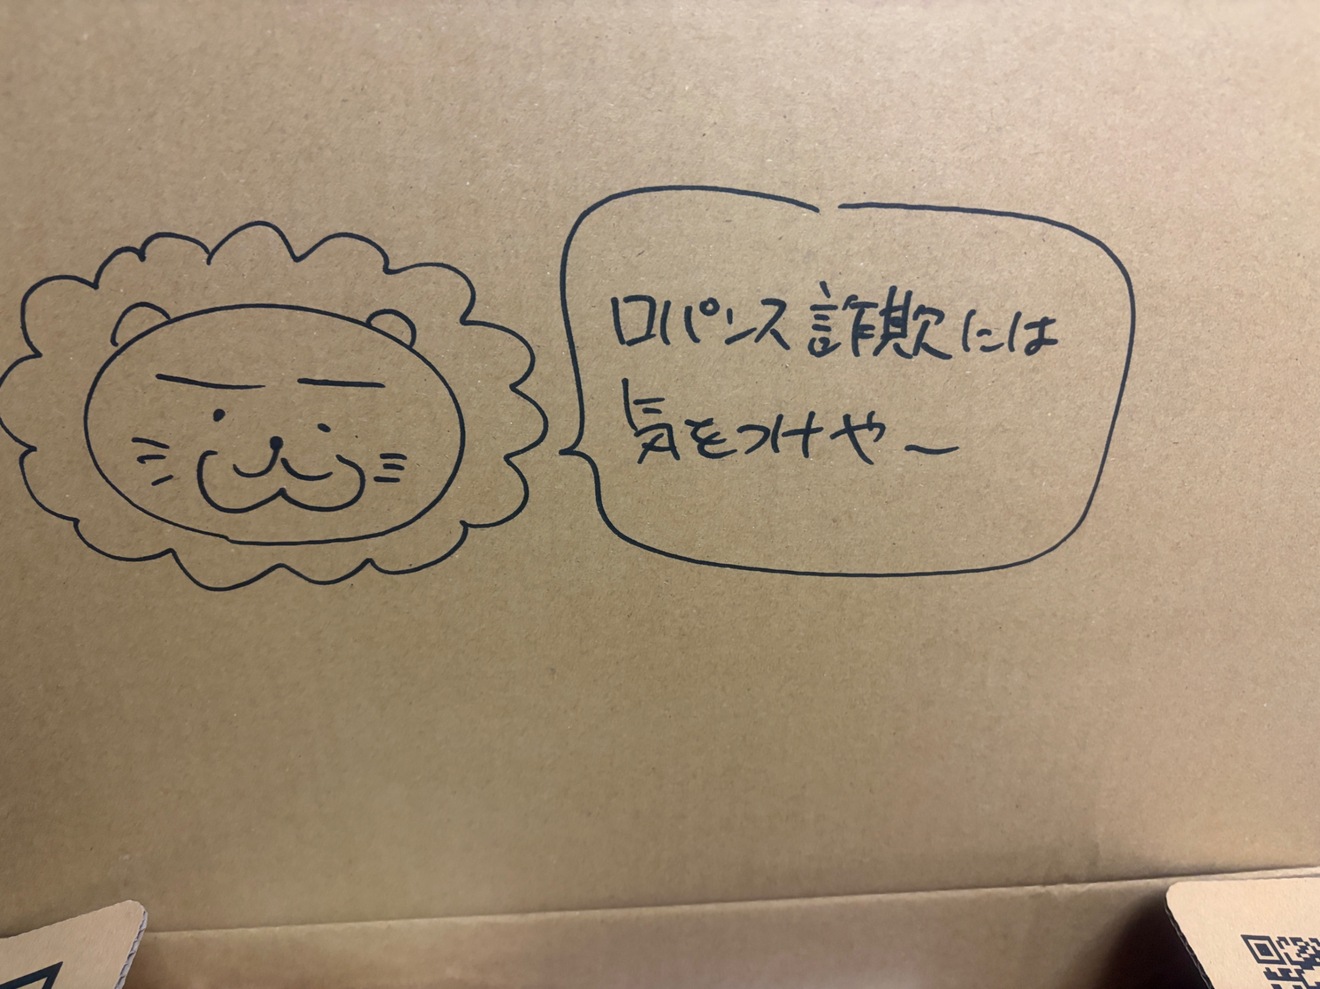 ロパンス詐欺には
気をつけや〜